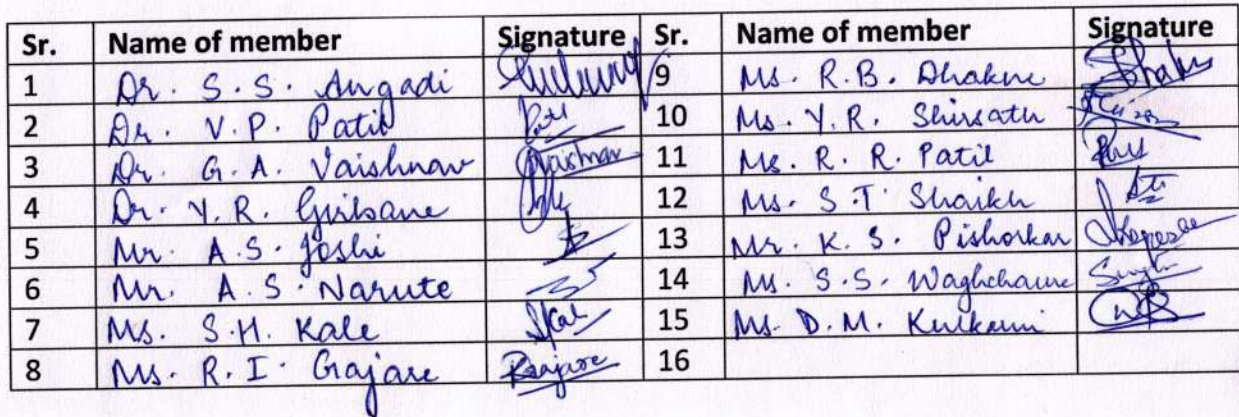 Sr. Name of member Signature Sr. Name of member Signature
1 Dr. S. S. Angadi 9 Ms. R.B. Dhakne
2 Dr. V.P. Patil 10 Ms. Y.R. Shirsath
3 Dr. G. A. Vaishnav Vaishnav 11 Ms. R. R. Patil
4 Dr. Y. R. Girbane 12 Ms. S.T Shaikh
5 Mr. A.S. Joshi 13 Mr. K. S. Pishorkar
6 Mr. A.S. Narute 14 Ms. S.S. Waghchaure
7 Ms. S.H. Kale 15 Ms. D.M. Kulkarni
8 Ms. R.I. Gajare 16